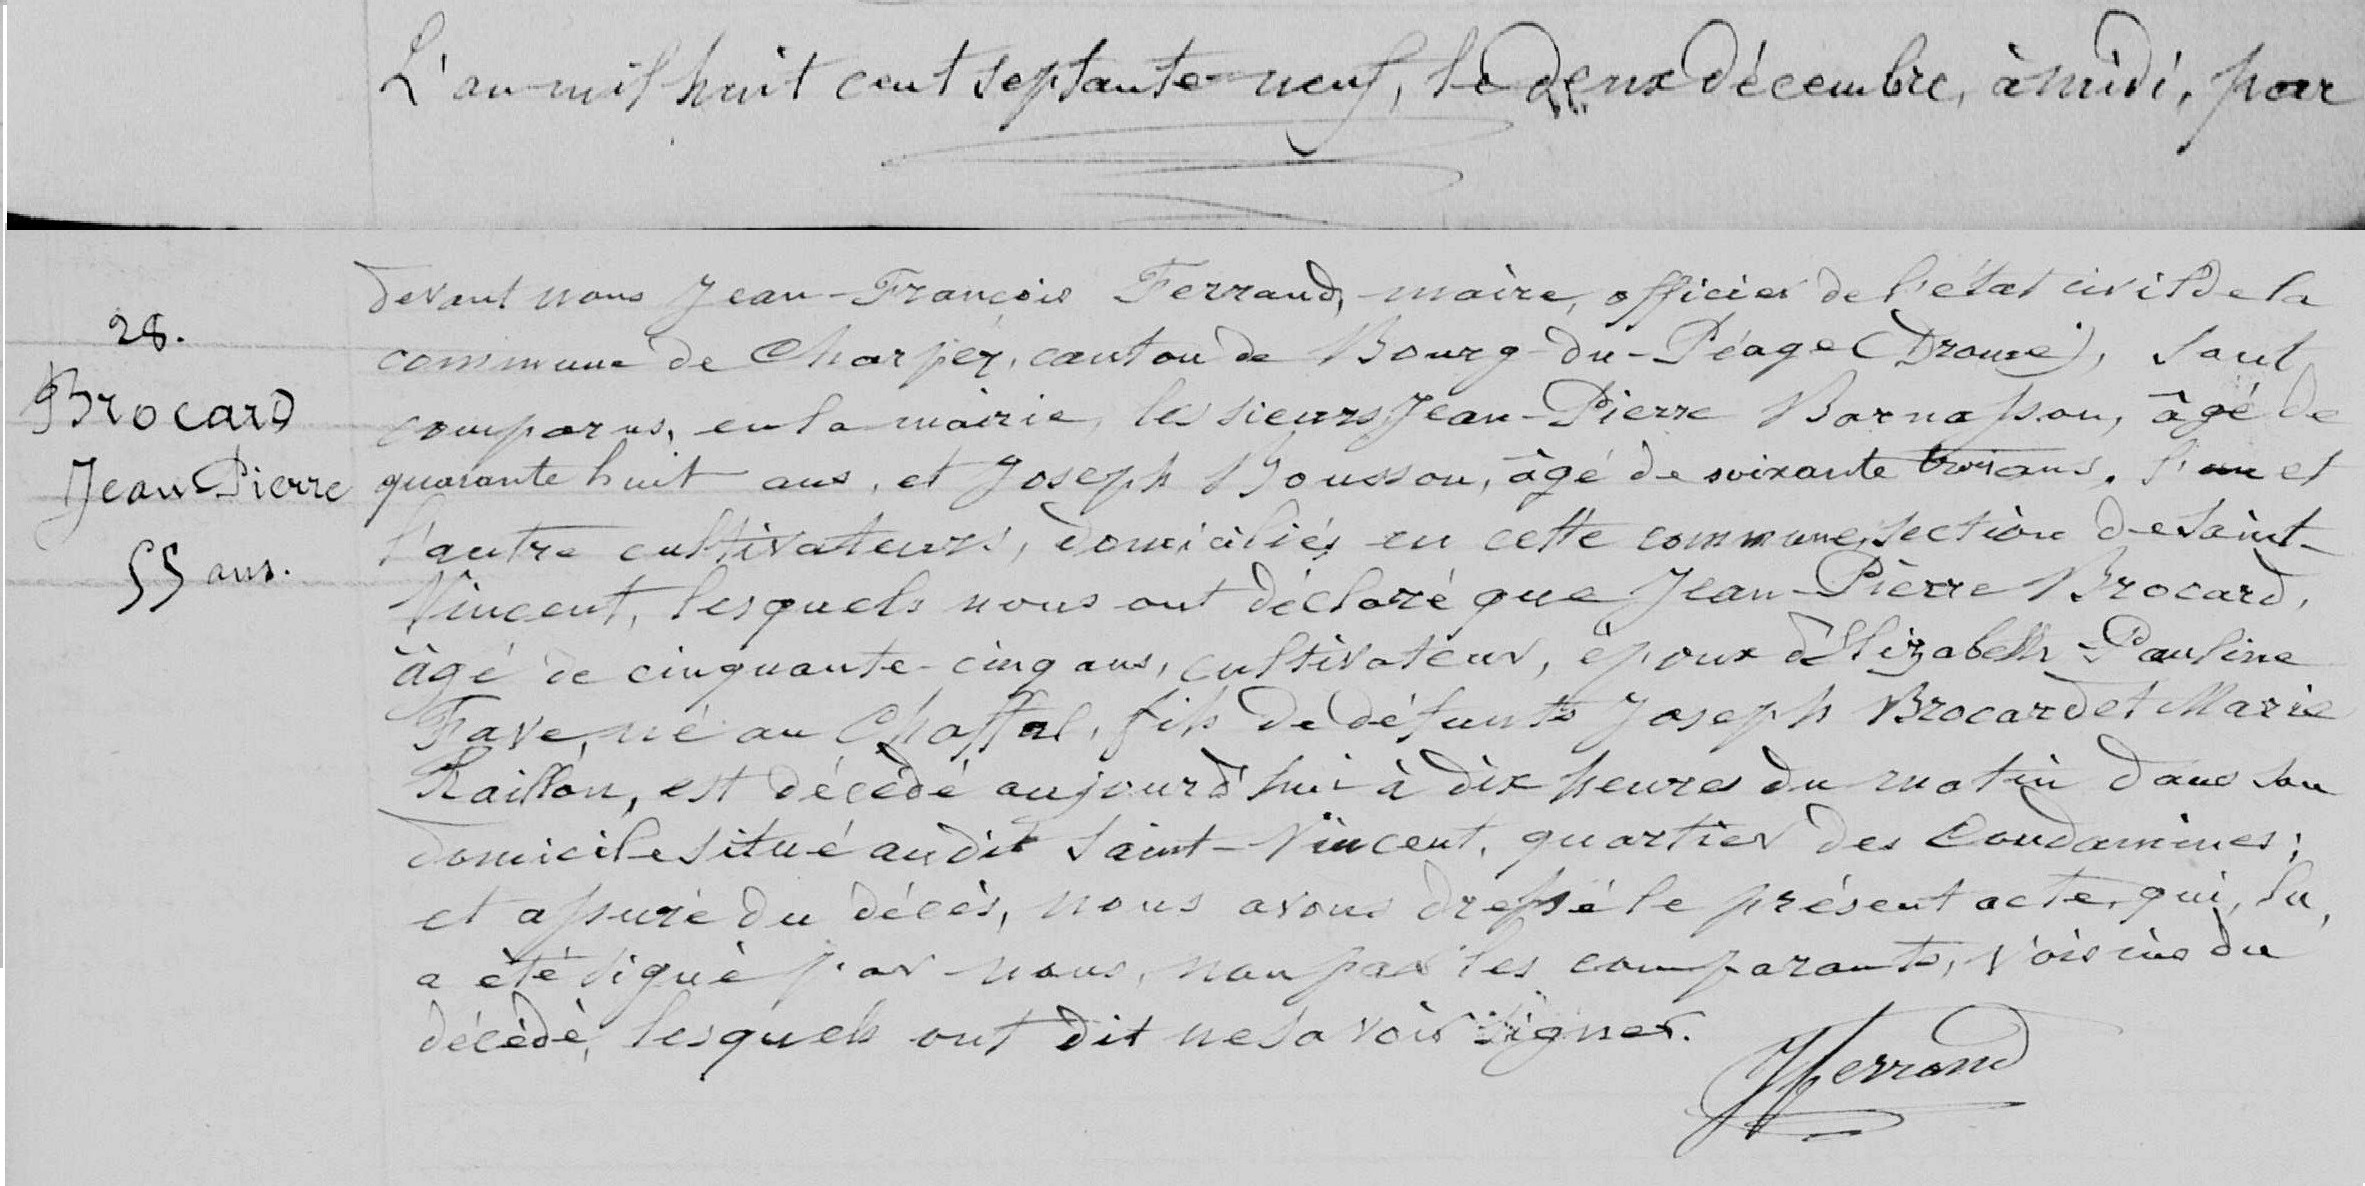 L'an mil huit cent septante-neuf, le deux décembre, à midi, par
devant nous Jean-François Ferrand, maire, officier de l'état civil de la
28.
commune de Charpey, canton de Bourg-du-Péage (Drome), sont
Brocard
comparus, en la mairie, les sieurs Jean-Pierre Bornasson, âgé de
Jean Pierre
quarante huit ans, et Joseph Bousson, âgé de soixante trois ans, l'un et
55 ans.
l'autre cultivateurs, domiciliés en cette commune, section de Saint-
Vincent, lesquels nous ont déclaré que Jean-Pierre Brocard,
âgé de cinquante-cinq ans, cultivateur, époux d'Elizabeth-Pauline
Fave, né au Chaffal, fils de défunts Joseph Brocard et Marie
Raillon, est décédé aujourd'hui à dix heures du matin dans son
domicile situé audit Saint-Vincent, quartier des Condamines;
et assuré du décès, nous avons dressé le présent acte, qui, lu,
a été signé par nous, non par les comparants, voisins du
décédé, lesquels ont dit ne savoir signer.
JFerrand